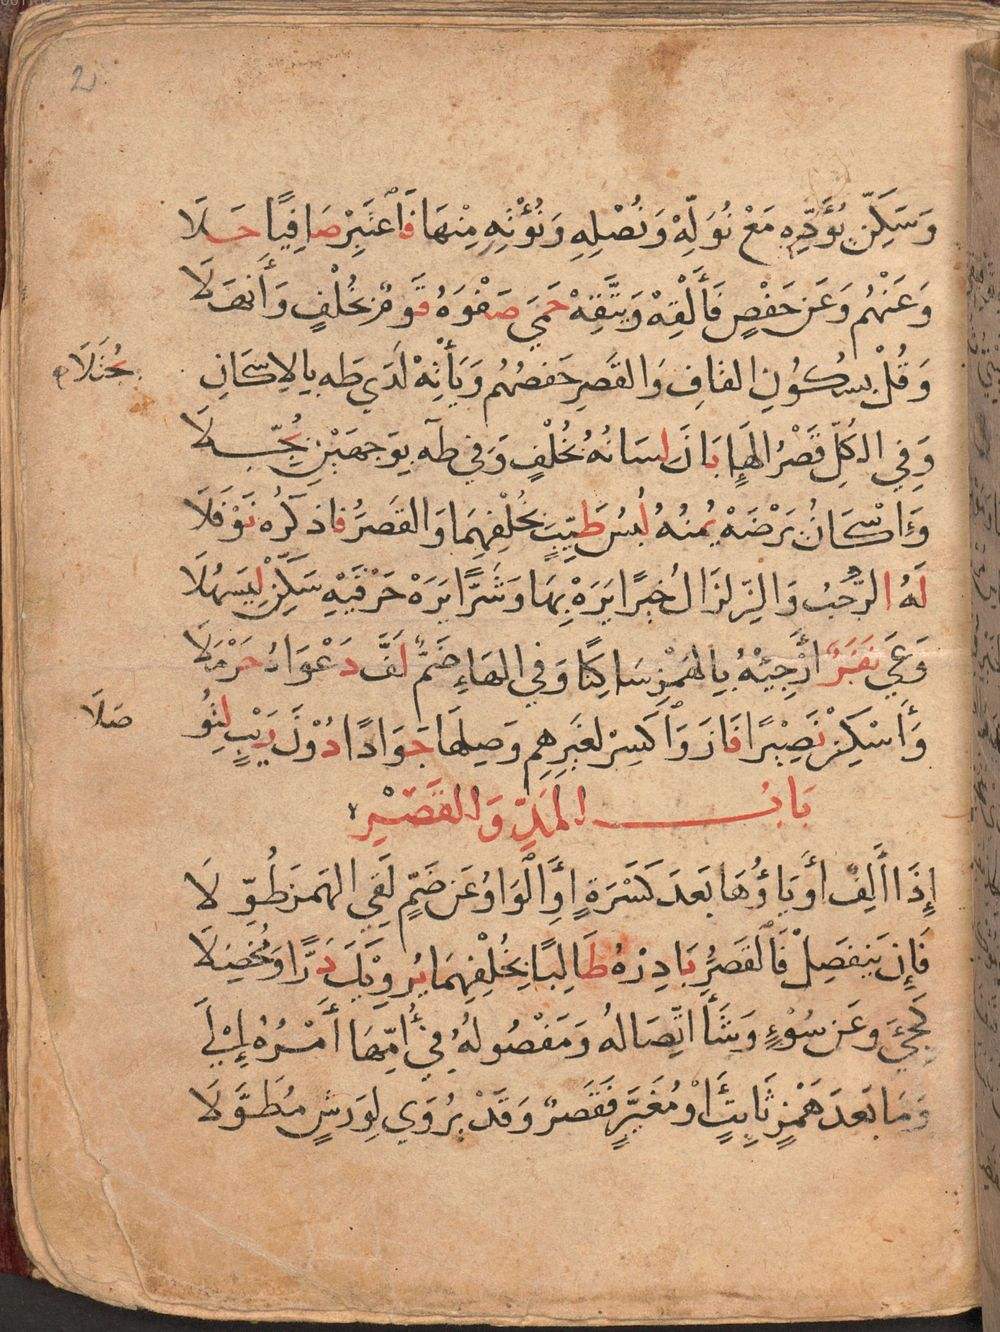 2
وَسَكِّنْ يُؤَدِّهِ مَعْ نُوَلِّهْ وَنُصْلِهِ وَنُؤْتِهِ مِنْهَا فَاعْتَبِرْ صَافِيًا حَلَا
وَعَنْهُم وَعَن حَفْصٍ فَأَلْقِهْ وَيَتَّقِهْ حَمَى صَفْوَهُ قَومٌ بِخُلْفٍ وَأَنهَلَا
وَقُلْ بِسُكُونِ القَافِ وَالقَصرِ حَفصُهُم وَيَأْتِهْ لَدَى طه بِالاِسْكَانِ يُجْتَلَا
وَفِي الكُلِّ قَصْرُ الهَاءِ بَانَ لِسَانُهُ بِخُلْفٍ وَفِي طه بِوَجهَيْنِ بُجِّلَا
وَإِسْكَانُ يَرْضَهْ يُمنُهُ لُبسُ طَيِّبٍ بِخُلْفِهِمَا وَالقَصرُ فَاذكُرهُ نَوْفَلَا
لَهُ الرُّحْبُ وَالزِلزَالُ خَيرًا يَرَهْ بِهَا وَشَرًّا يَرَهْ حَرْفَيْهِ سَكِّنْ لِيَسهُلَا
وَعَى نَفَرٌ أَرْجِئْهُ بِالهَمْزِ سَاكِنًا وَفِي الهَاءِ ضَمٌّ لَفَّ دَعْوَاهُ حَرْمَلَا
وَأَسْكِنْ نَصِيرًا فَازَ وَاكسِرْ لغَيرِهِم وَصِلهَا جَوَادًا دُوْنَ رَيْبٍ لِتُوصَلَا
بَابُ المَدِّ وَالقَصْرِ
إِذَا أَلِفٌ أَو يَاؤُهَا بَعدَ كَسْرَةٍ أَوِ الْوَاوُ عَن ضَمٍّ لَقِي الهَمزَ طُوِّلَا
فَإِن يَنفَصِلْ فَالقَصرُ بَادِرْهُ طَالِبًا بِخُلْفِهِمَا يُروِيكَ دَرًّا وَمُخضَلَا
كَجِيءَ وَعَن سُوْءٍ وَشَاءَ اتِّصَالُهُ وَمَفْصُولُهُ فِي أُمِّهَا أَمْرُهُ إِلَى
وَمَا بَعدَ هَمْزٍ ثَابِتٍ أَوْ مُغَيَّرٍ فَقَصرٌ وَقَدْ يُروَى لِوَرشٍ مُطَوَّلَا